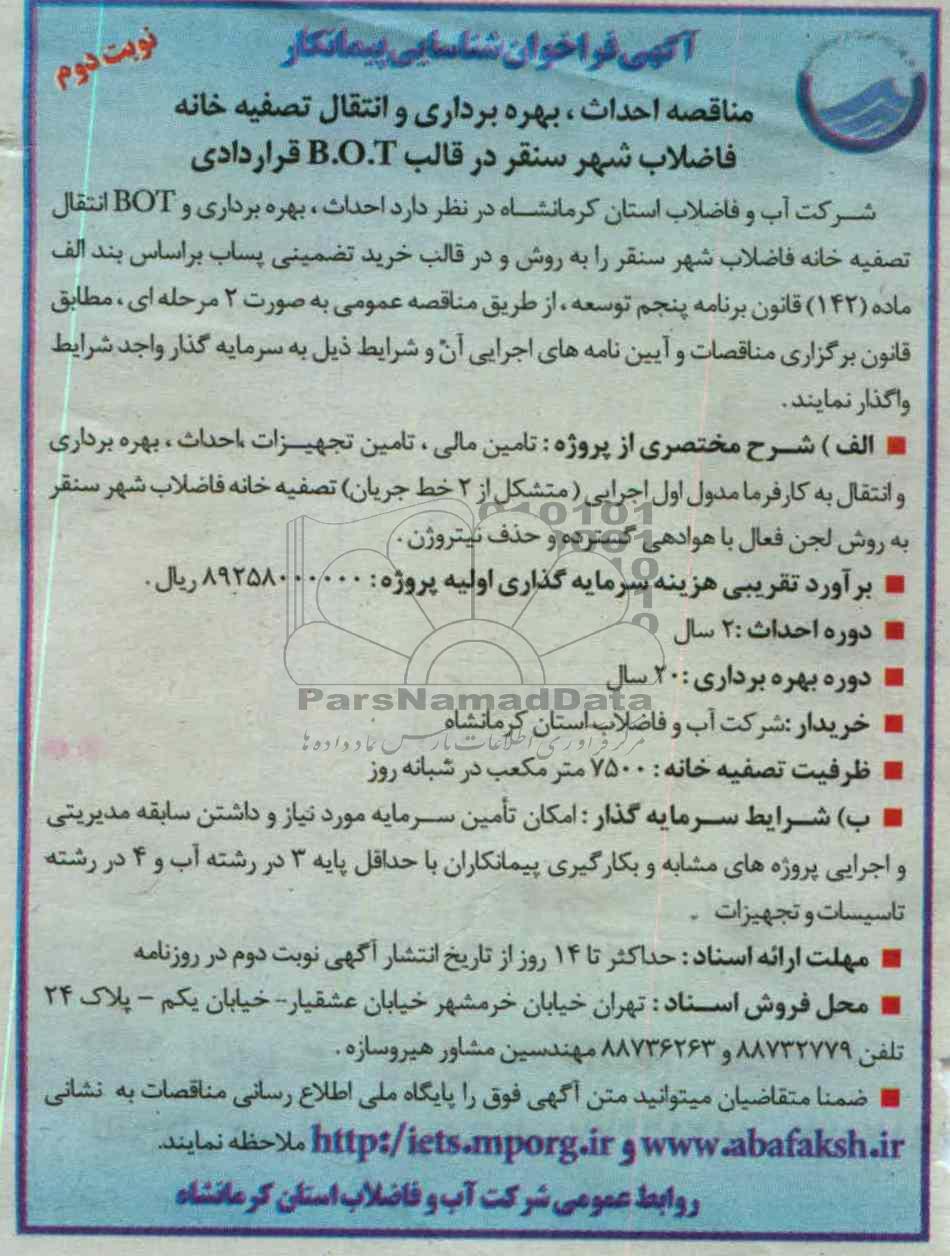 آگهی فراخوان شناسایی پیمانکار
نوبت دوم
مناقصه احداث ، بهره برداری و انتقال تصفیه خانه
فاضلاب شهر سنقر در قالب B.O.T قراردادی
شرکت آب و فاضلاب استان کرمانشاه در نظر دارد احداث ، بهره برداری و BOT انتقال
تصفیه خانه فاضلاب شهر سنقر را به روش و در قالب خرید تضمینی پساب براساس بند الف
ماده (۱۴۲) قانون برنامه پنجم توسعه ، از طریق مناقصه عمومی به صورت ۲ مرحله ای ، مطابق
قانون برگزاری مناقصات و آیین نامه های اجرایی آن و شرایط ذیل به سرمایه گذار واجد شرایط
واگذار نمایند .
الف ) شرح مختصری از پروژه : تامین مالی ، تامین تجهیزات ،احداث ، بهره برداری
و انتقال به کارفرما مدول اول اجرایی ( متشکل از ۲ خط جریان) تصفیه خانه فاضلاب شهر سنقر
به روش لجن فعال با هوادهی گسترده و حذف نیتروژن .
برآورد تقریبی هزینه سرمایه گذاری اولیه پروژه : ۸۹۲۵۸۰۰۰۰۰۰ ریال .
دوره احداث :۲ سال
دوره بهره برداری :۲۰ سال
ParsNamadData
خریدار :شرکت آب و فاضلاب استان کرمانشاه
مرکز فرآوری اطلاعات پارس نماد داده ها
ظرفیت تصفیه خانه : ۷۵۰۰ متر مکعب در شبانه روز
ب) شرایط سرمایه گذار : امکان تأمین سرمایه مورد نیاز و داشتن سابقه مدیریتی
و اجرایی پروژه های مشابه و بکارگیری پیمانکاران با حداقل پایه ۳ در رشته آب و ۴ در رشته
تاسیسات و تجهیزات .
مهلت ارائه اسناد : حداکثر تا ۱۴ روز از تاریخ انتشار آگهی نوبت دوم در روزنامه
محل فروش اسناد : تهران خیابان خرمشهر خیابان عشقیار- خیابان یکم – پلاک ۲۴
تلفن ۸۸۷۳۲۷۷۹ و ۸۸۷۳۶۲۶۳ مهندسین مشاور هیروسازه .
ضمنا متقاضیان میتوانید متن آگهی فوق را پایگاه ملی اطلاع رسانی مناقصات به نشانی
www.abafaksh.ir و http:/iets.mporg.ir ملاحظه نمایند.
روابط عمومی شرکت آب و فاضلاب استان کرمانشاه